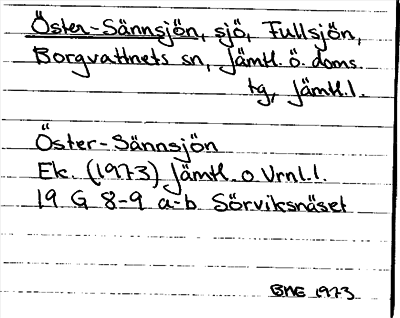 Öster-Sännsjön, sjö, Fullsjön,
Borgvattnets sn, Jämtl. ö. doms.
tg, Jämtl.l.
Öster-Sännsjön
Ek. (1973) Jämtl. o Vrnl.l.
19 G 8-9 a-b Sörviksnäset
BME 1973